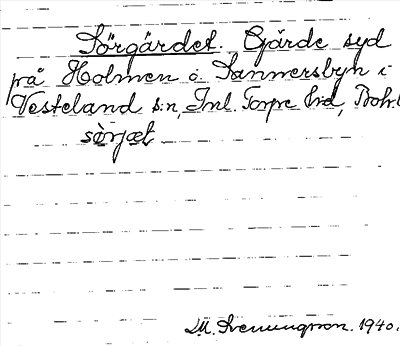 Sörgärdet. Gärde syd
på Holmen å Sannersbyn i
Vesteland s:n, Inl. Torpe hd, Boh.l
sö̀rjæt
M. Svenungson. 1940.